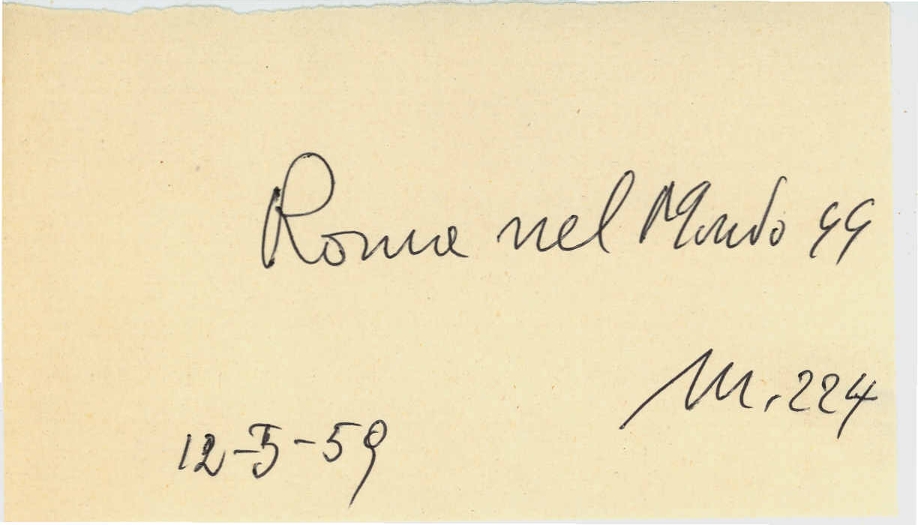 Roma nel Mondo 99
M. 224
12-5-59